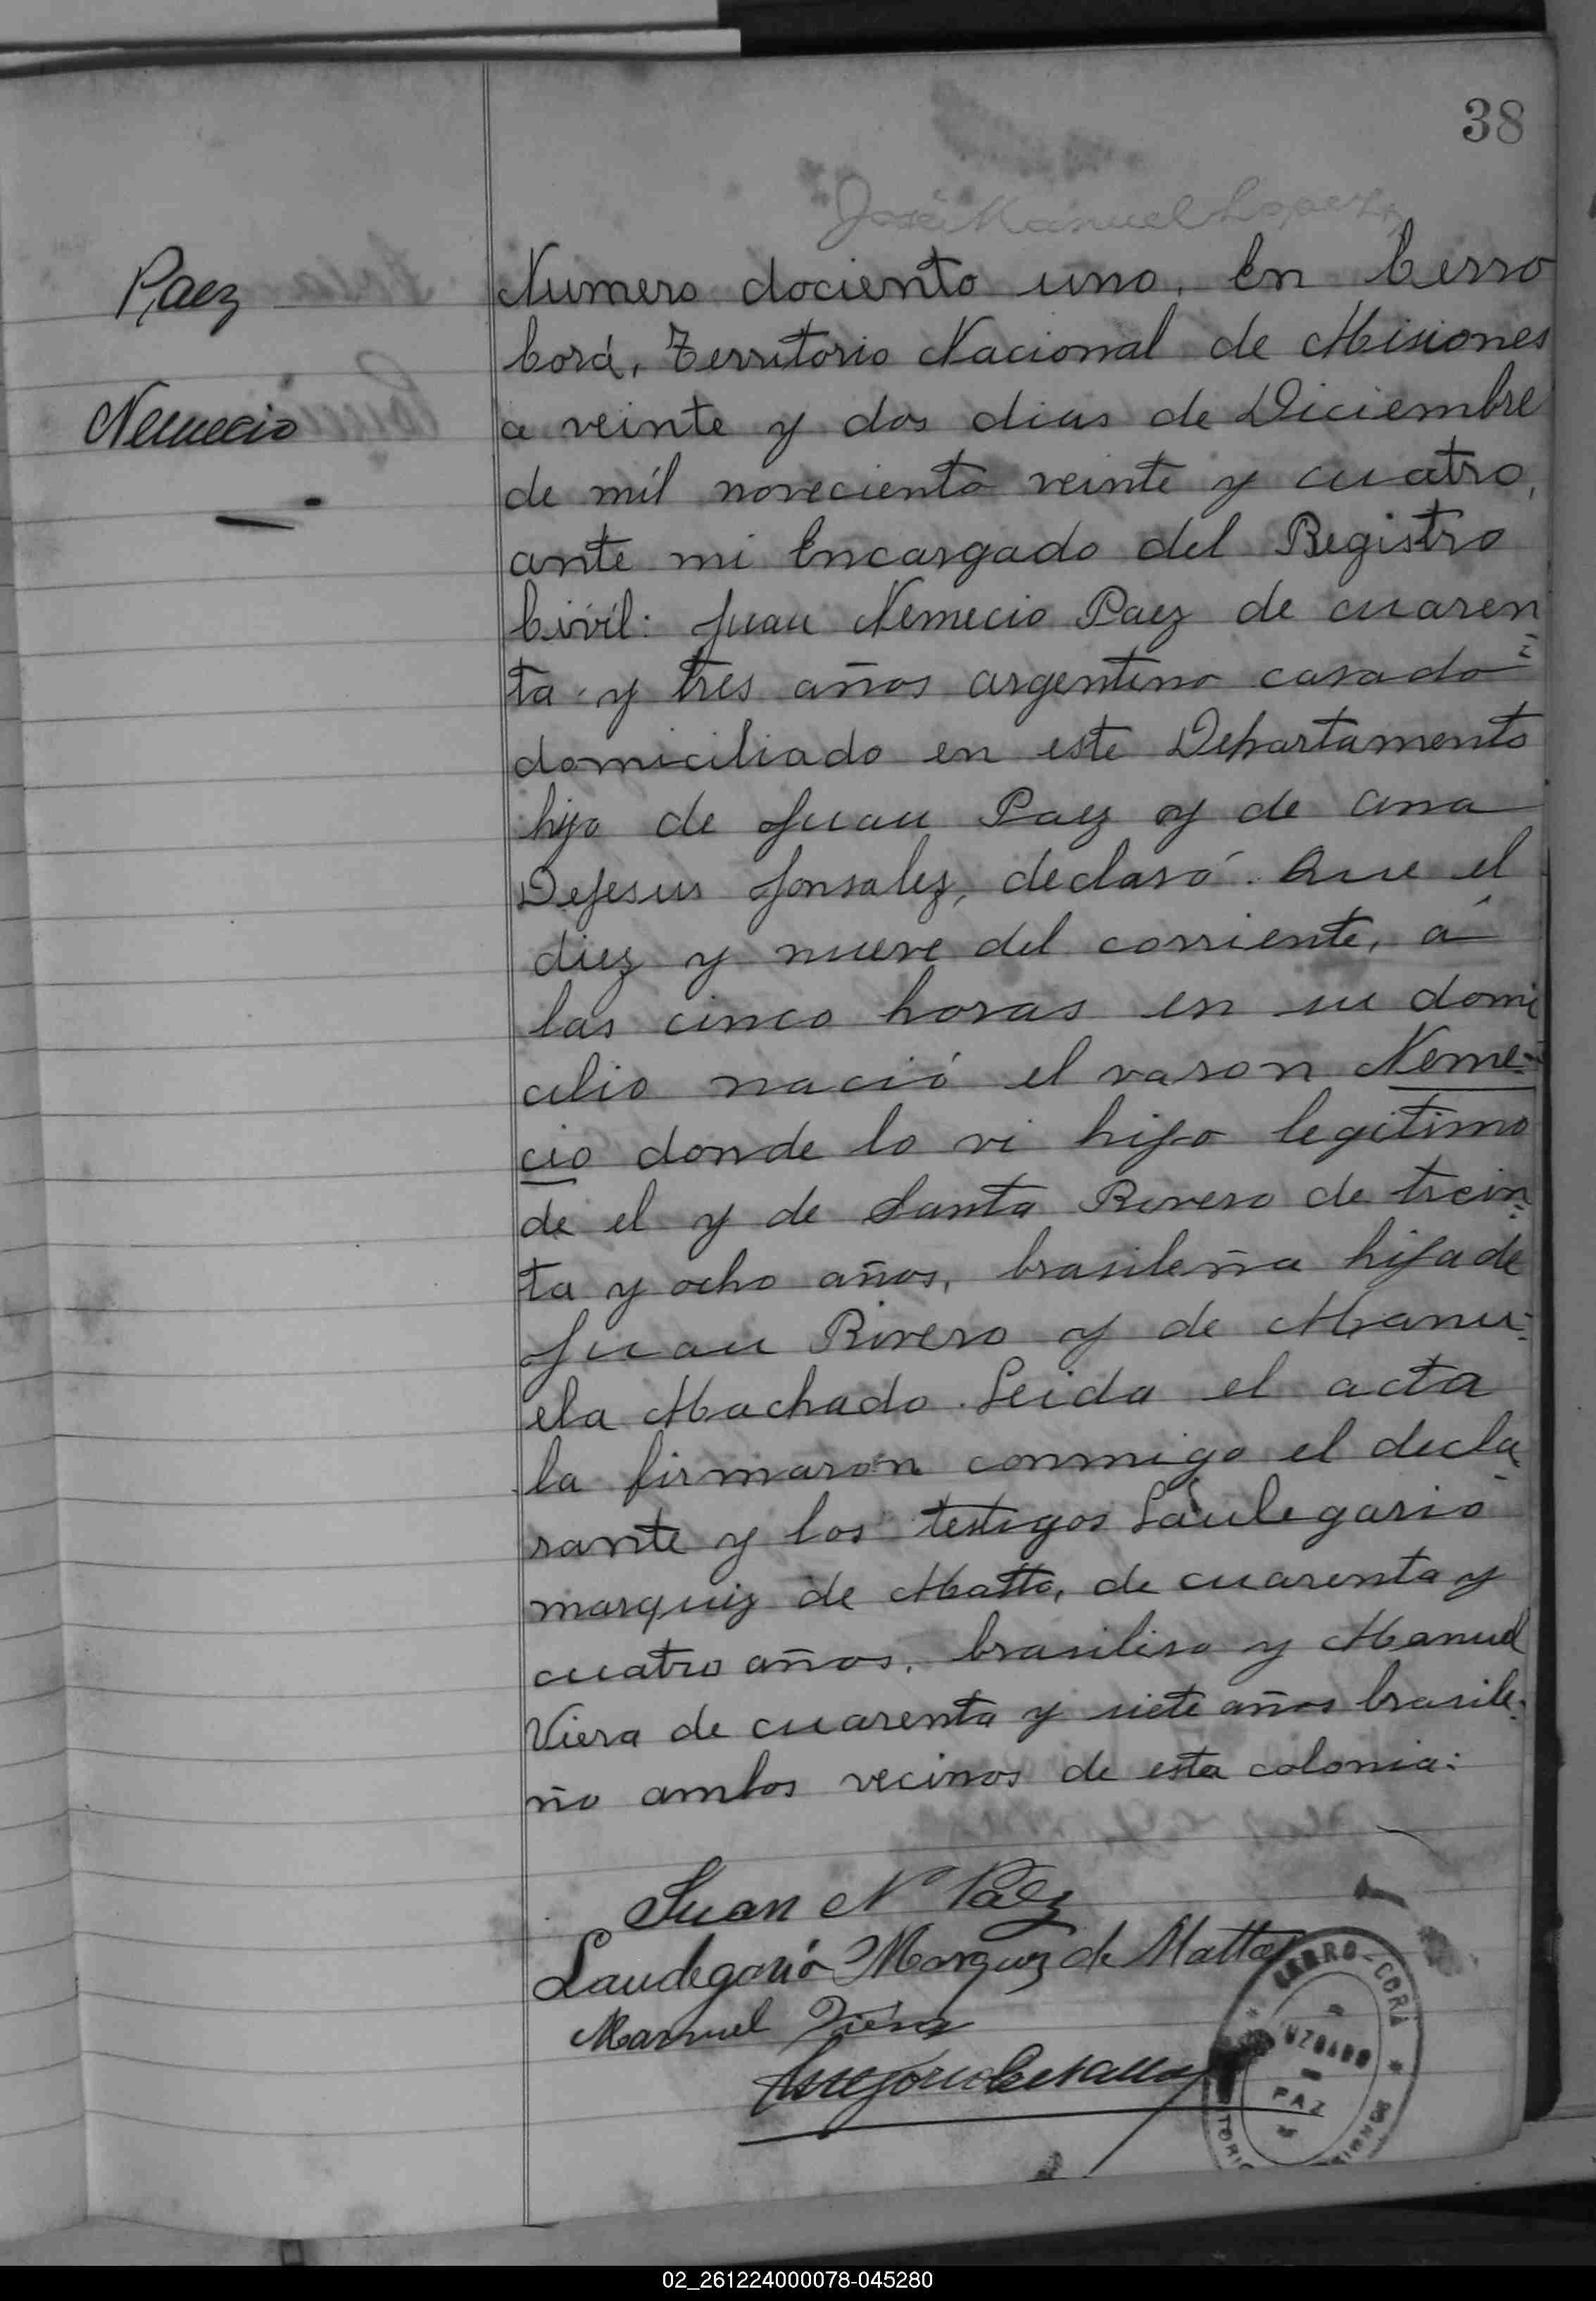 38
José Manuel Lopez
Paez
Nemecio
Numero dociento uno. En Cerro
Corá, Territorio Nacional de Misiones
a veinte y dos dias de Diciembre
de mil noveciento veinte y cuatro,
ante mi Encargado del Registro
Civil: Juan Nemecio Paez de cuaren
ta y tres años argentino casado
domiciliado en este Departamento
hijo de Juan Paez y de Ana
Dejesus Gonsalez, declaró. Que el
diez y nueve del corriente, á
las cinco horas en su domi
cilio nació el varon Neme-
cio donde lo vi hijo legitimo
de el y de Santa Rivero de trein
ta y ocho años, brasileña hija de
Juan Rivero y de Manu-
ela Machado. Leida el acta
la firmaron conmigo el decla
rante y los testigos Laulegario
marquiz de Matto, de cuarenta y
cuatro años, brasilero y Manuel
Viera de cuarenta y siete años brasile-
ño ambos vecinos de esta colonia:
Juan N Paez
Laudegario Marquez de Mattos
Manuel Viera
CERRO-CORÁ
JUZGADO
PAZ
02_261224000078-045280